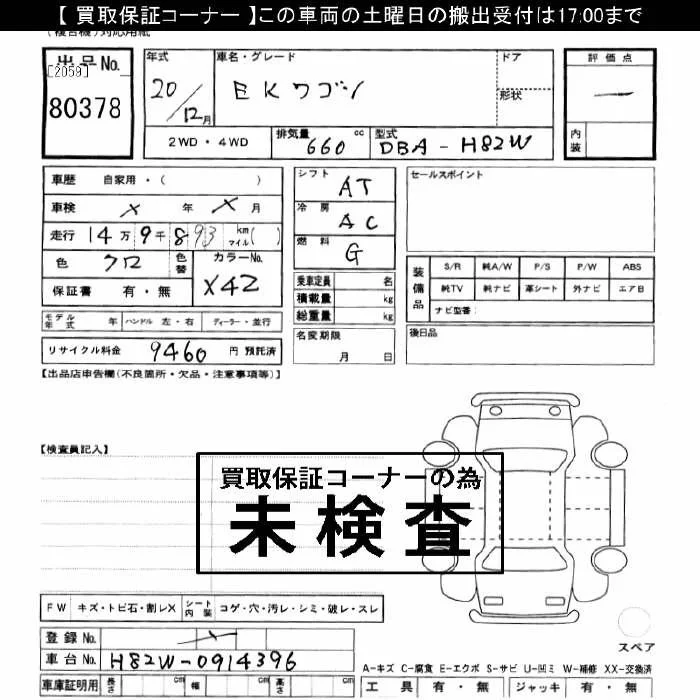 【 買取保証コーナー 】この車両の土曜日の搬出受付は17:00まで
(複合機)対応用紙
出品No. [2059] 80378
年式 20/12月
車名・グレード EKワゴン
ドア
形状
評価点 一
内装
2WD・4WD
排気量 660 cc
型式 DBA-H82W
車歴 自家用・( )
車検 × 年 × 月
走行 14万9千893 km マイル( )
色 クロ 色替 カラーNo. X42
保証書 有・無
モデル年式 年 ハンドル 左・右 ディーラー・並行
リサイクル料金 9460 円 預託済
シフト AT
冷房 AC
燃料 G
乗車定員 名
積載量 kg
総重量 kg
名変期限 月 日
セールスポイント
装備品 S/R 純A/W P/S P/W ABS
純TV 純ナビ 革シート 外ナビ エアB
ナビ型番:
後日品
【出品店申告欄(不良箇所・欠品・注意事項等)】
【検査員記入】
買取保証コーナーの為
未検査
FW キズ・トビ石・割レX シート内装 コゲ・穴・汚レ・シミ・破レ・スレ
登録No. ×
車台No. H82W-0914396
車庫証明用 長さ cm 幅 cm 高さ cm
スペア
A-キズ C-腐食 E-エクボ S-サビ U-凹ミ W-補修 XX-交換済
工具 有・無 ジャッキ 有・無